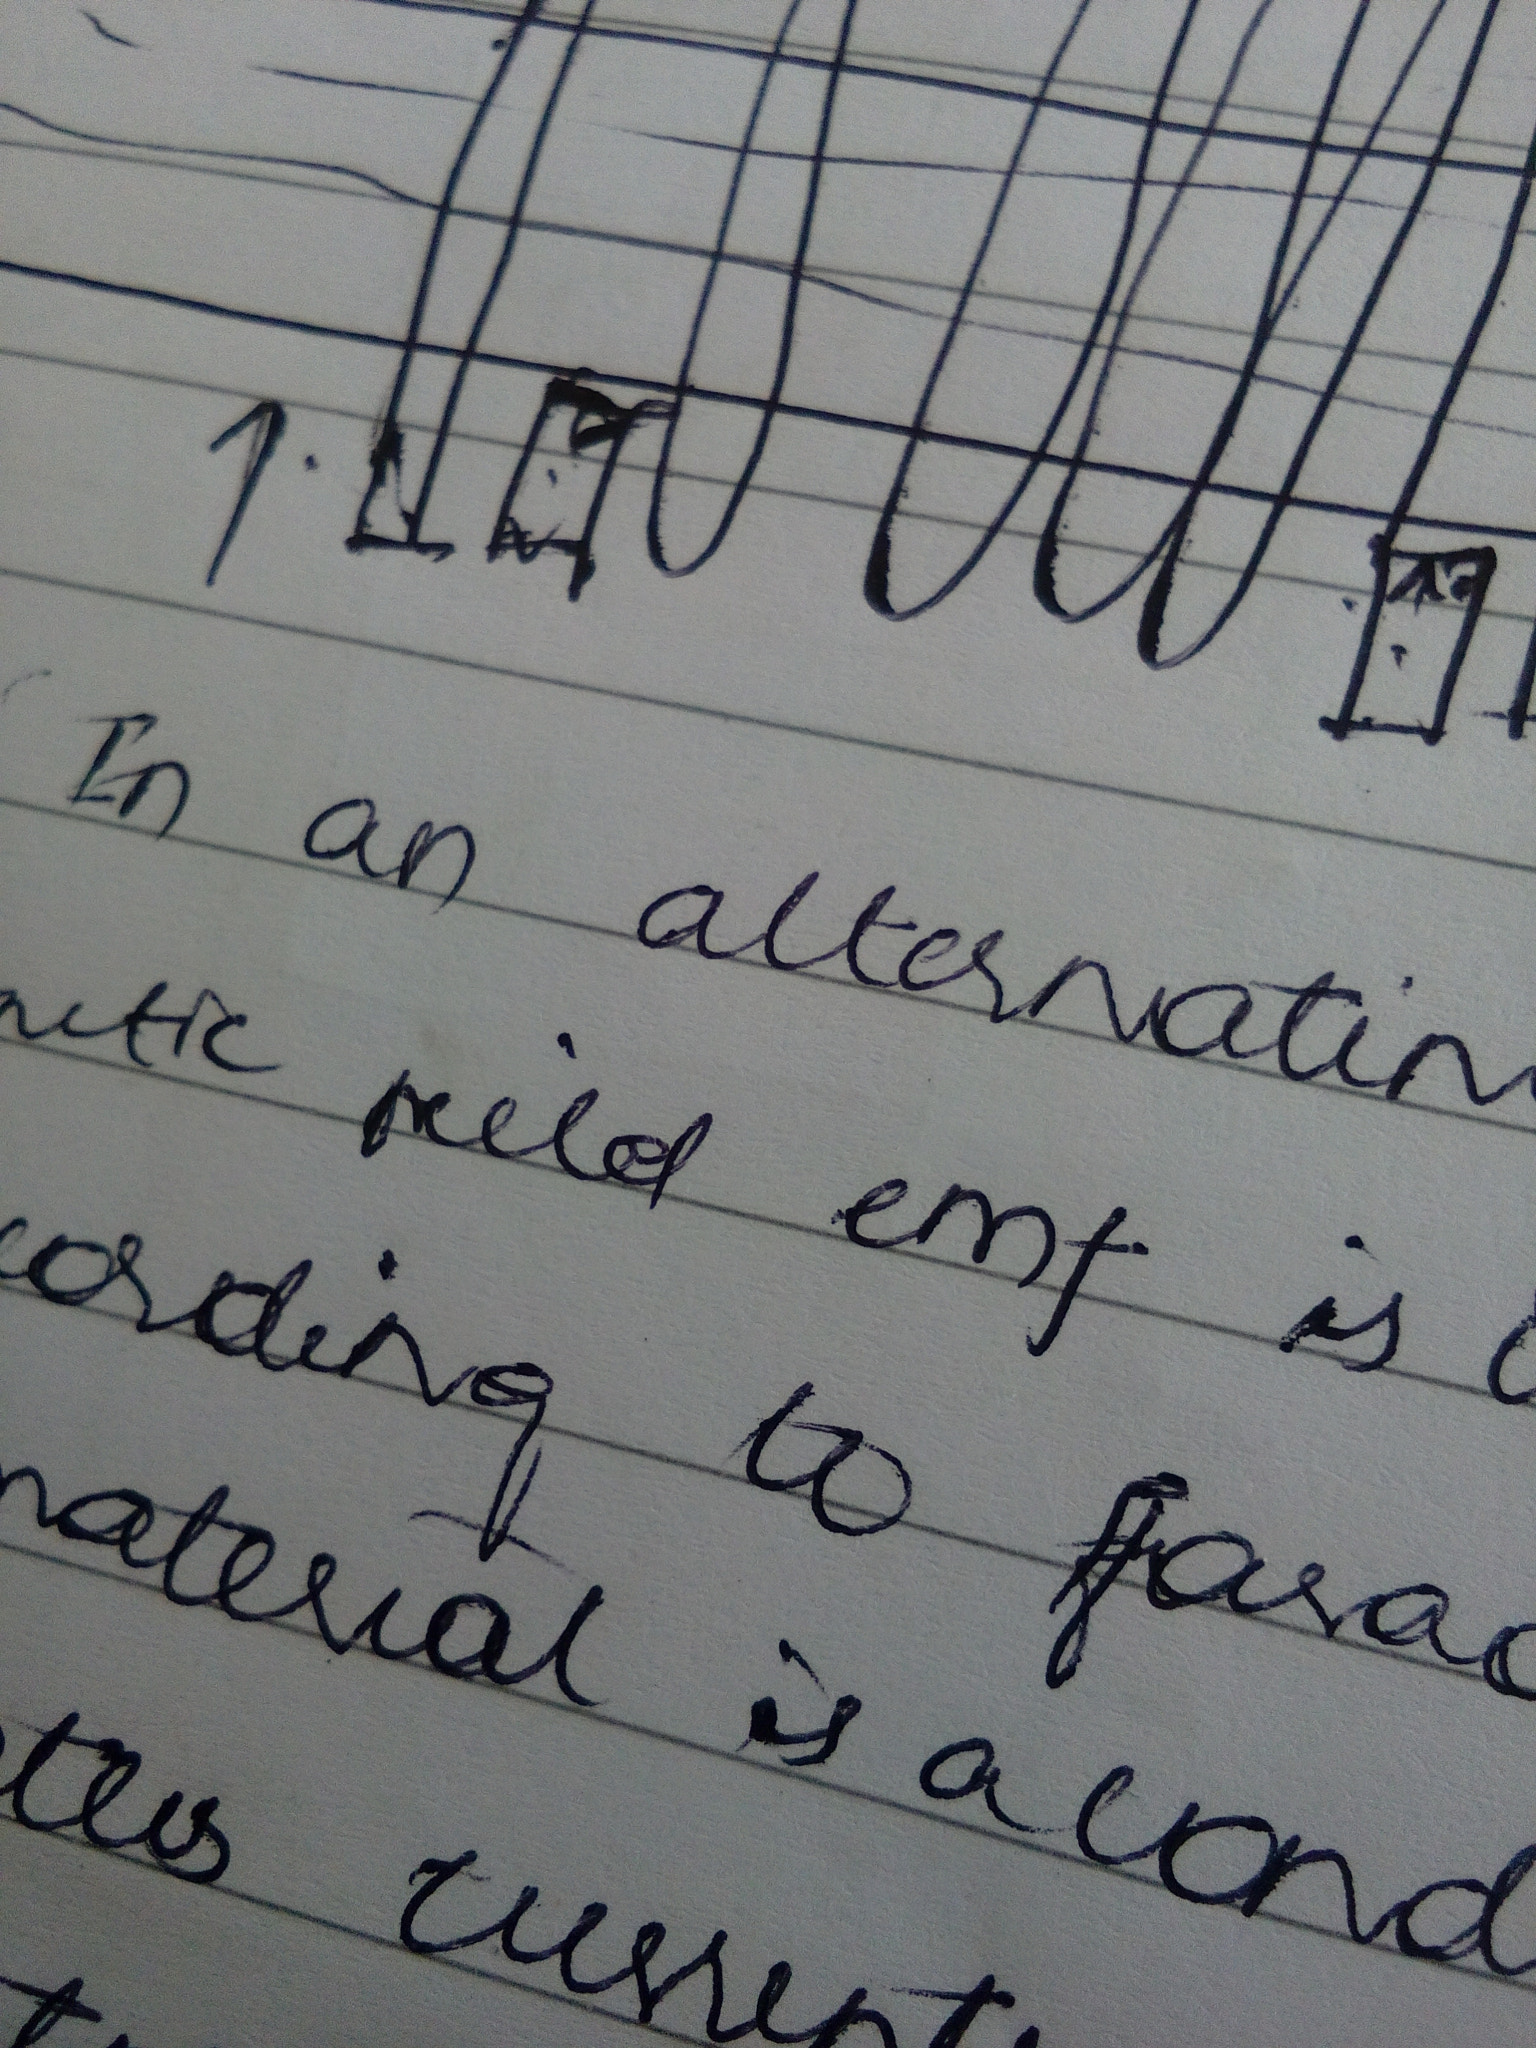 1.
In an alternatin
netic feild emf is
cording to farad
material is a cond
ates current